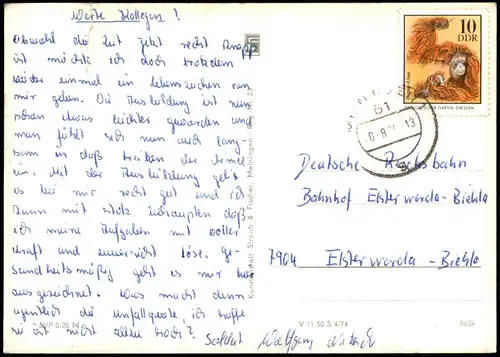 Werte Kollegen!
Obwohl die Zeit jetzt recht knapp
ist möchte ich doch trotzdem
wieder einmal ein Lebenszeichen von
mir geben. Die Ausbildung ist nun
schon etwas leichter geworden und
man fühlt sich nun auch lang-
sam in daß treiben der Armee
ein. Mit der Ausbildung geht
es bei mir recht gut und ich
kann mit stolz behaupten daß
ich meine Aufgaben mit voller
Kraft und zuversicht löse. Ge-
sundheitsmäßig geht es mir
ausgezeichnet. Was macht denn
eigentlich die unfallquote, ich hoffe
sie ist nicht allzu hoch?
Soldat Wolfgang
EVP 0,20 M
Kunstanstalt Straub & Fischer, Meiningen
10
DDR
ZOOLOGISCHER GARTEN DRESDEN
61
13
Deutsche Reichsbahn
Bahnhof Elsterwerda-Biehla
7904 Elsterwerda-Biehla
V 11 50 S 4/74
8654